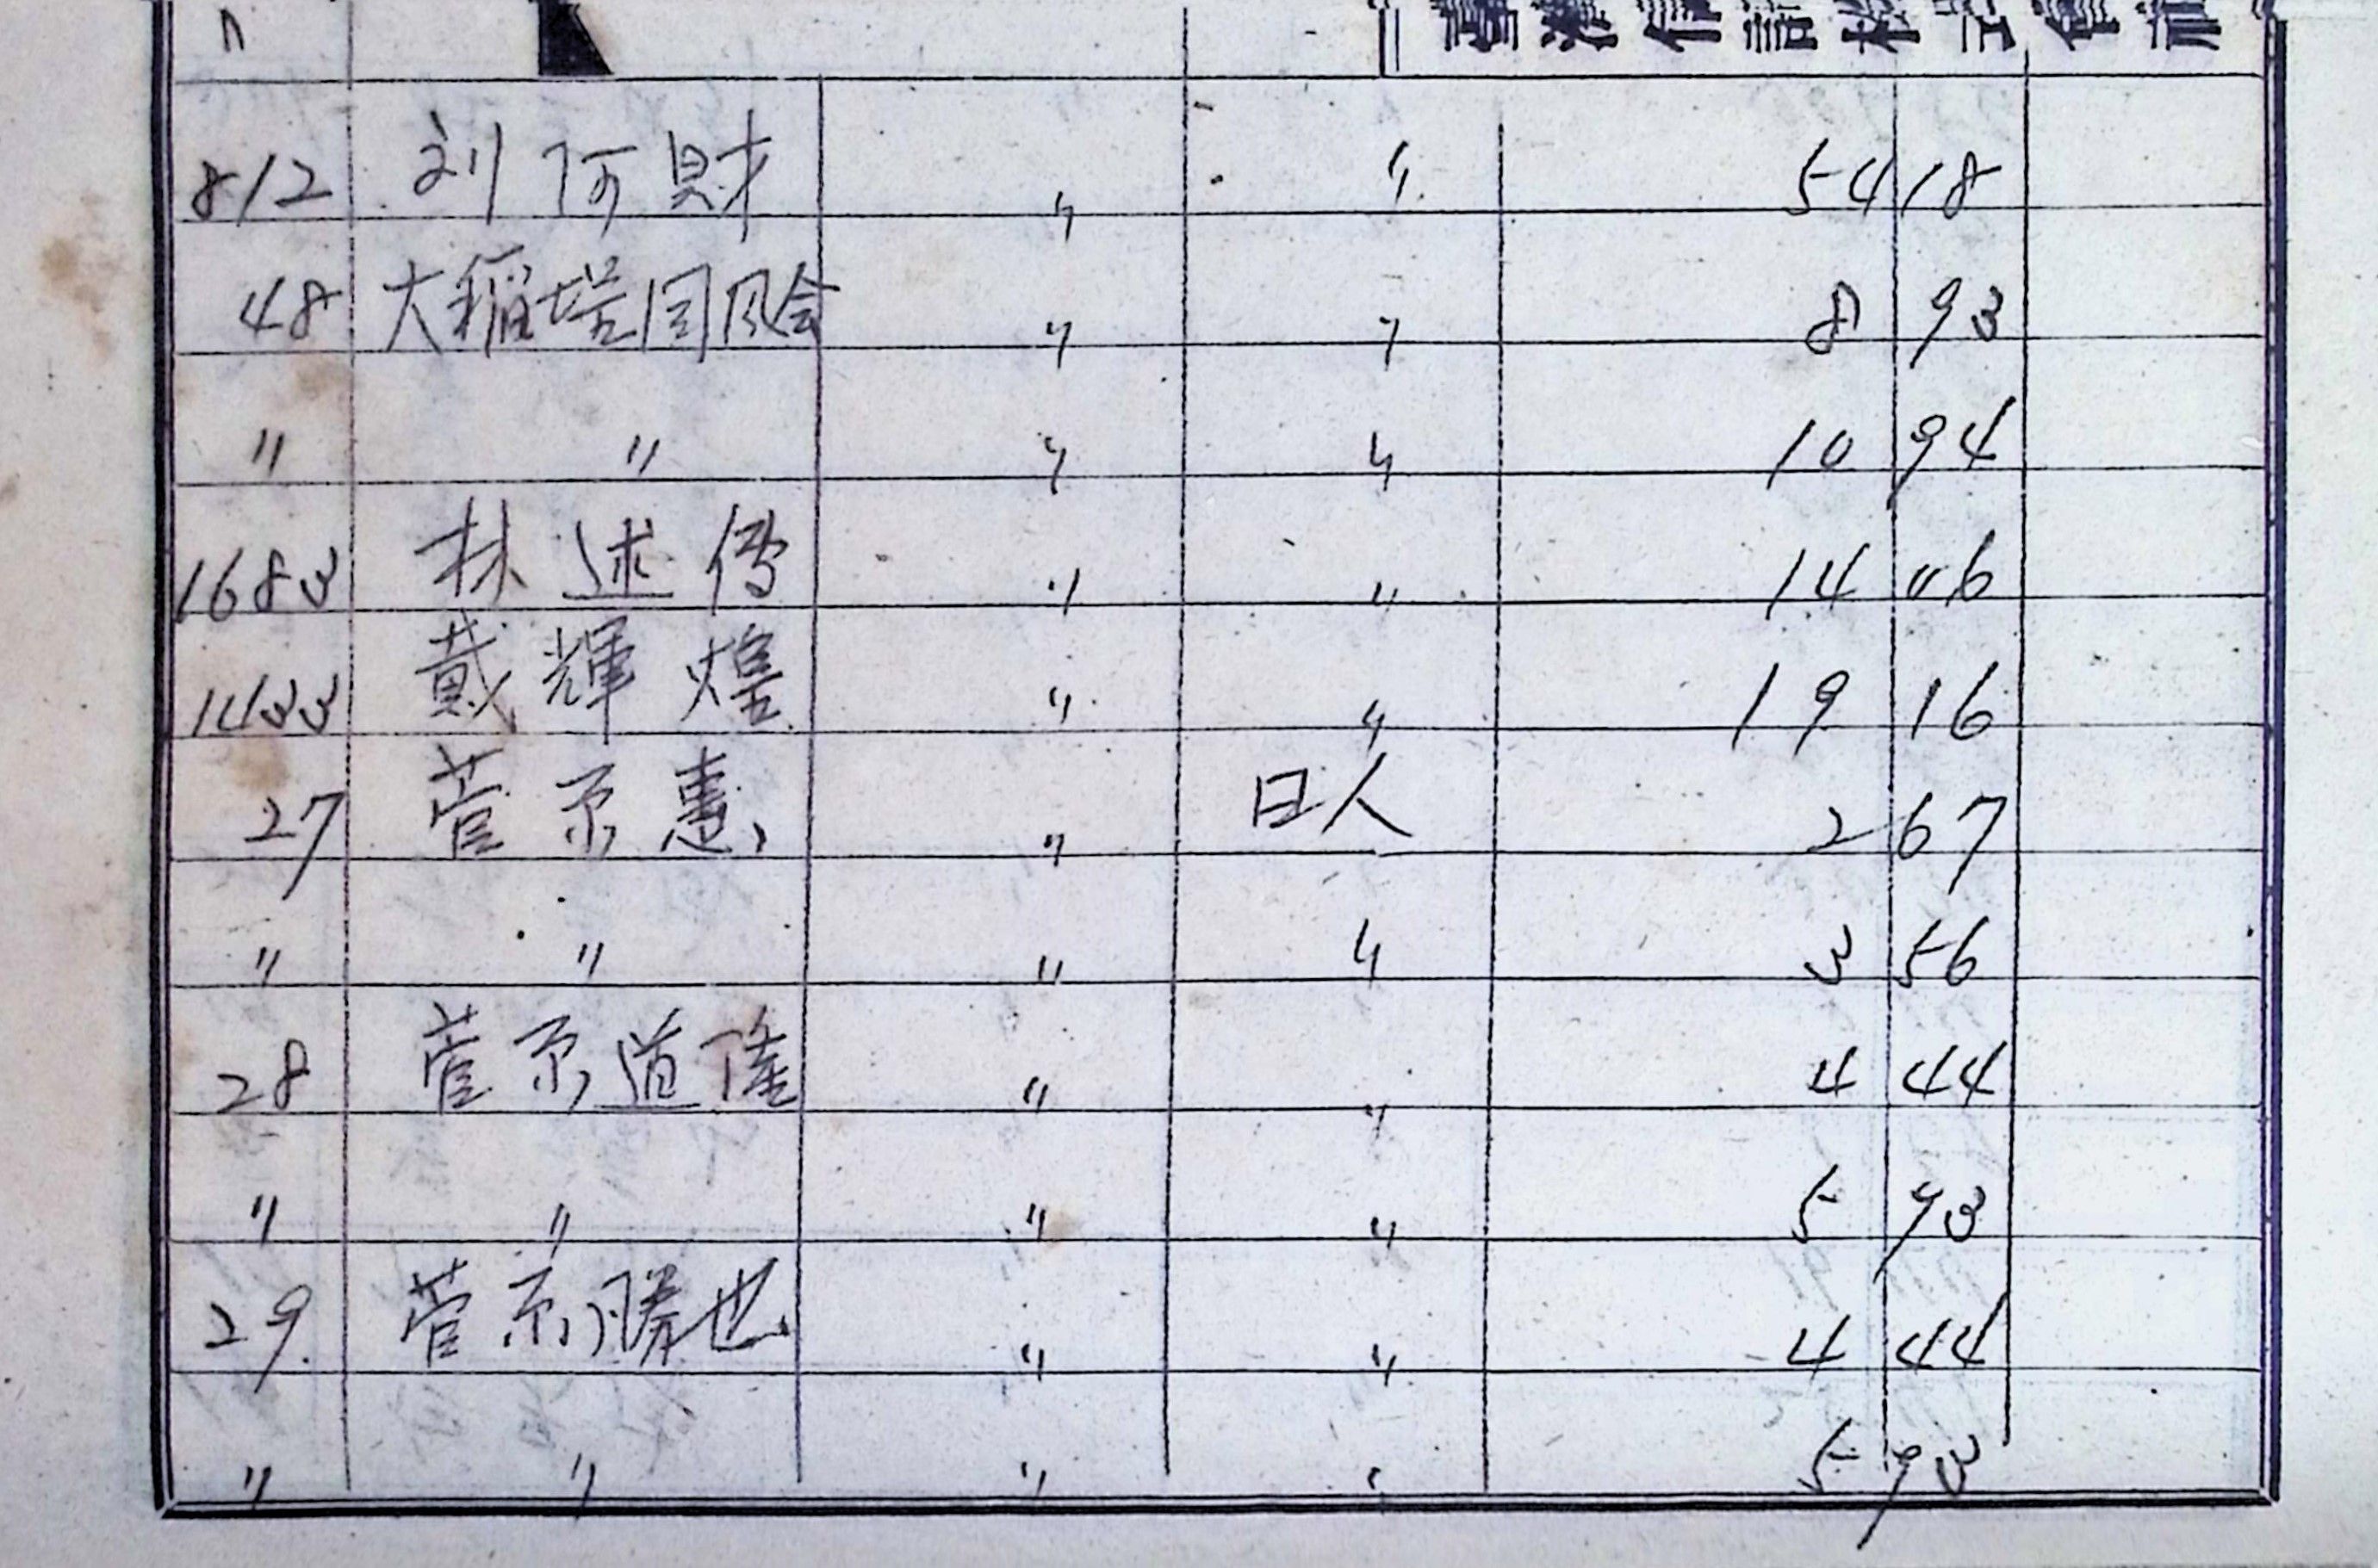 812 刘阿財 〃 〃 54 18
48 大稲埕同风会 〃 〃 8 93
〃 〃 〃 〃 10 94
1683 林述传 〃 〃 14 06
1433 戴輝煌 〃 〃 19 16
27 菅京惠 〃 日人 2 67
〃 〃 〃 〃 3 56
28 菅京道隆 〃 〃 4 44
〃 〃 〃 〃 5 93
29 菅京勝也 〃 〃 4 44
〃 〃 〃 〃 5 93